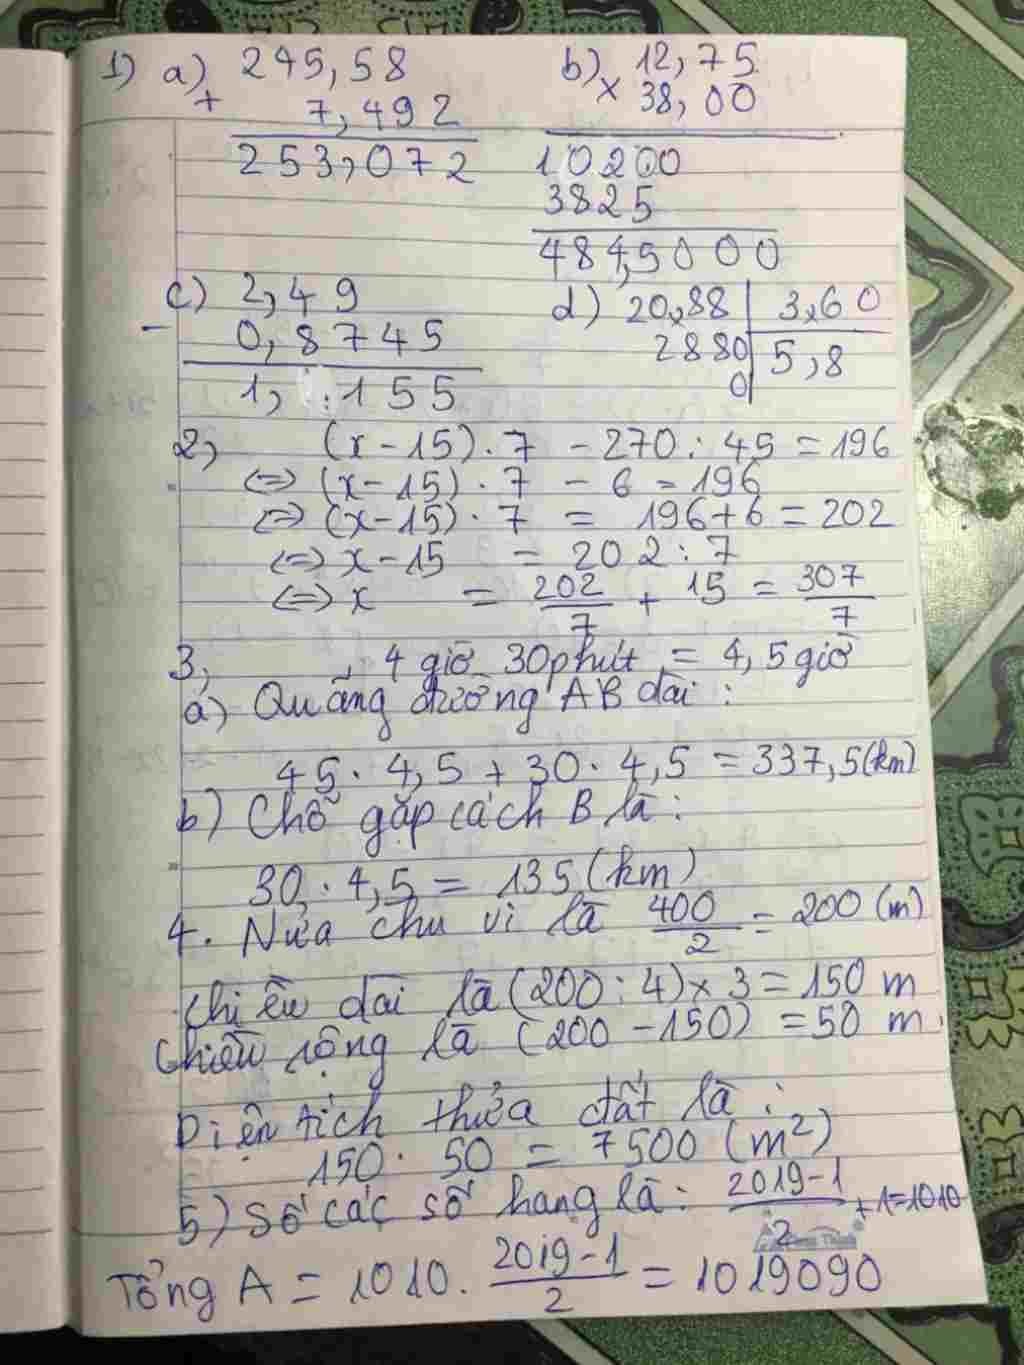 1) a) 245,58 b) 12,75
+ 7,492 × 38,00
253,072 10200
3825
484,5000
c) 2,49 d) 20,88 3,60
- 0,8745 2880 5,8
1, 155 0
2, (x-15).7 - 270:45 = 196
<=> (x-15).7 - 6 = 196
<=> (x-15).7 = 196+6 = 202
<=> x-15 = 202:7
<=> x = 202/7 + 15 = 307/7
3, 4 giờ 30phút = 4,5giờ
a) Quãng đường AB dài:
45.4,5 + 30.4,5 = 337,5(km)
b) Chỗ gặp cách B là:
30.4,5 = 135(km)
4. Nửa chu vi là 400/2 = 200 (m)
Chiều dài là (200:4)×3 = 150 m
Chiều rộng là (200-150) = 50 m
Diện tích thửa đất là:
150.50 = 7500 (m²)
5) Số các số hang là: 2019-1/2 + 1=1010
Tổng A = 1010. 2019-1/2 = 1019090